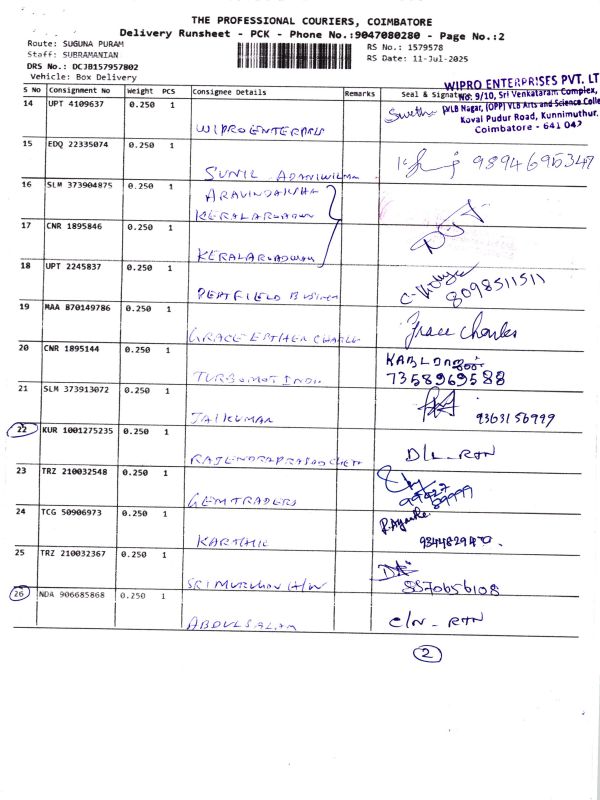 THE PROFESSIONAL COURIERS, COIMBATORE
Delivery Runsheet - PCK - Phone No.:9047080280 - Page No.:2
Route: SUGUNA PURAM
Staff: SUBRAMANIAN
DRS No.: DCJB157957802
Vehicle: Box Delivery
RS No.: 1579578
RS Date: 11-Jul-2025
S No Consignment No Weight PCS Consignee Details Remarks Seal & Signature
WIPRO ENTERPRISES PVT. LT
No: 9/10, Sri Venkataram Complex,
VLB Nagar, (OPP) VLB Arts and Science Colle
Kovai Pudur Road, Kunnimuthur.
Coimbatore - 641 042
14 UPT 4109637 0.250 1
WIPRO ENTERPRIS Swetha
15 EDQ 22335074 0.250 1
SUNIL ADANIWILMAR 9894695347
16 SLM 373904875 0.250 1
ARAVINDAKSHA
KERALA
17 CNR 1895846 0.250 1
KERALA
18 UPT 2245837 0.250 1
PEPFIELD BUSINESS C. Vidya 8098511511
19 MAA 870149786 0.250 1
GRACE ESTHER CHARLE Grace Charles
20 CNR 1895144 0.250 1
TURBOMOT INDIA 7358969588
21 SLM 373913072 0.250 1
JAIKUMAR 9363156999
22 KUR 1001275235 0.250 1
RAJENDRAPRASAD CHETT D/L - RTN
23 TRZ 210032548 0.250 1
GEM TRADERS
24 TCG 50906973 0.250 1
KARTHIC
25 TRZ 210032367 0.250 1
SRI MURUGAN H/W 8870656108
26 NDA 906685868 0.250 1
ABDULSALAM C/N - RTN
2